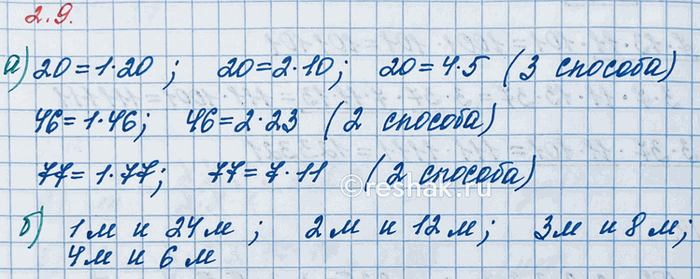 2.9.
а) 20=1·20 ; 20=2·10; 20=4·5 (3 способа)
46=1·46; 46=2·23 (2 способа)
77=1·77; 77=7·11 (2 способа)
©reshak.ru
б) 1м и 24м ; 2м и 12м; 3м и 8м;
4м и 6м